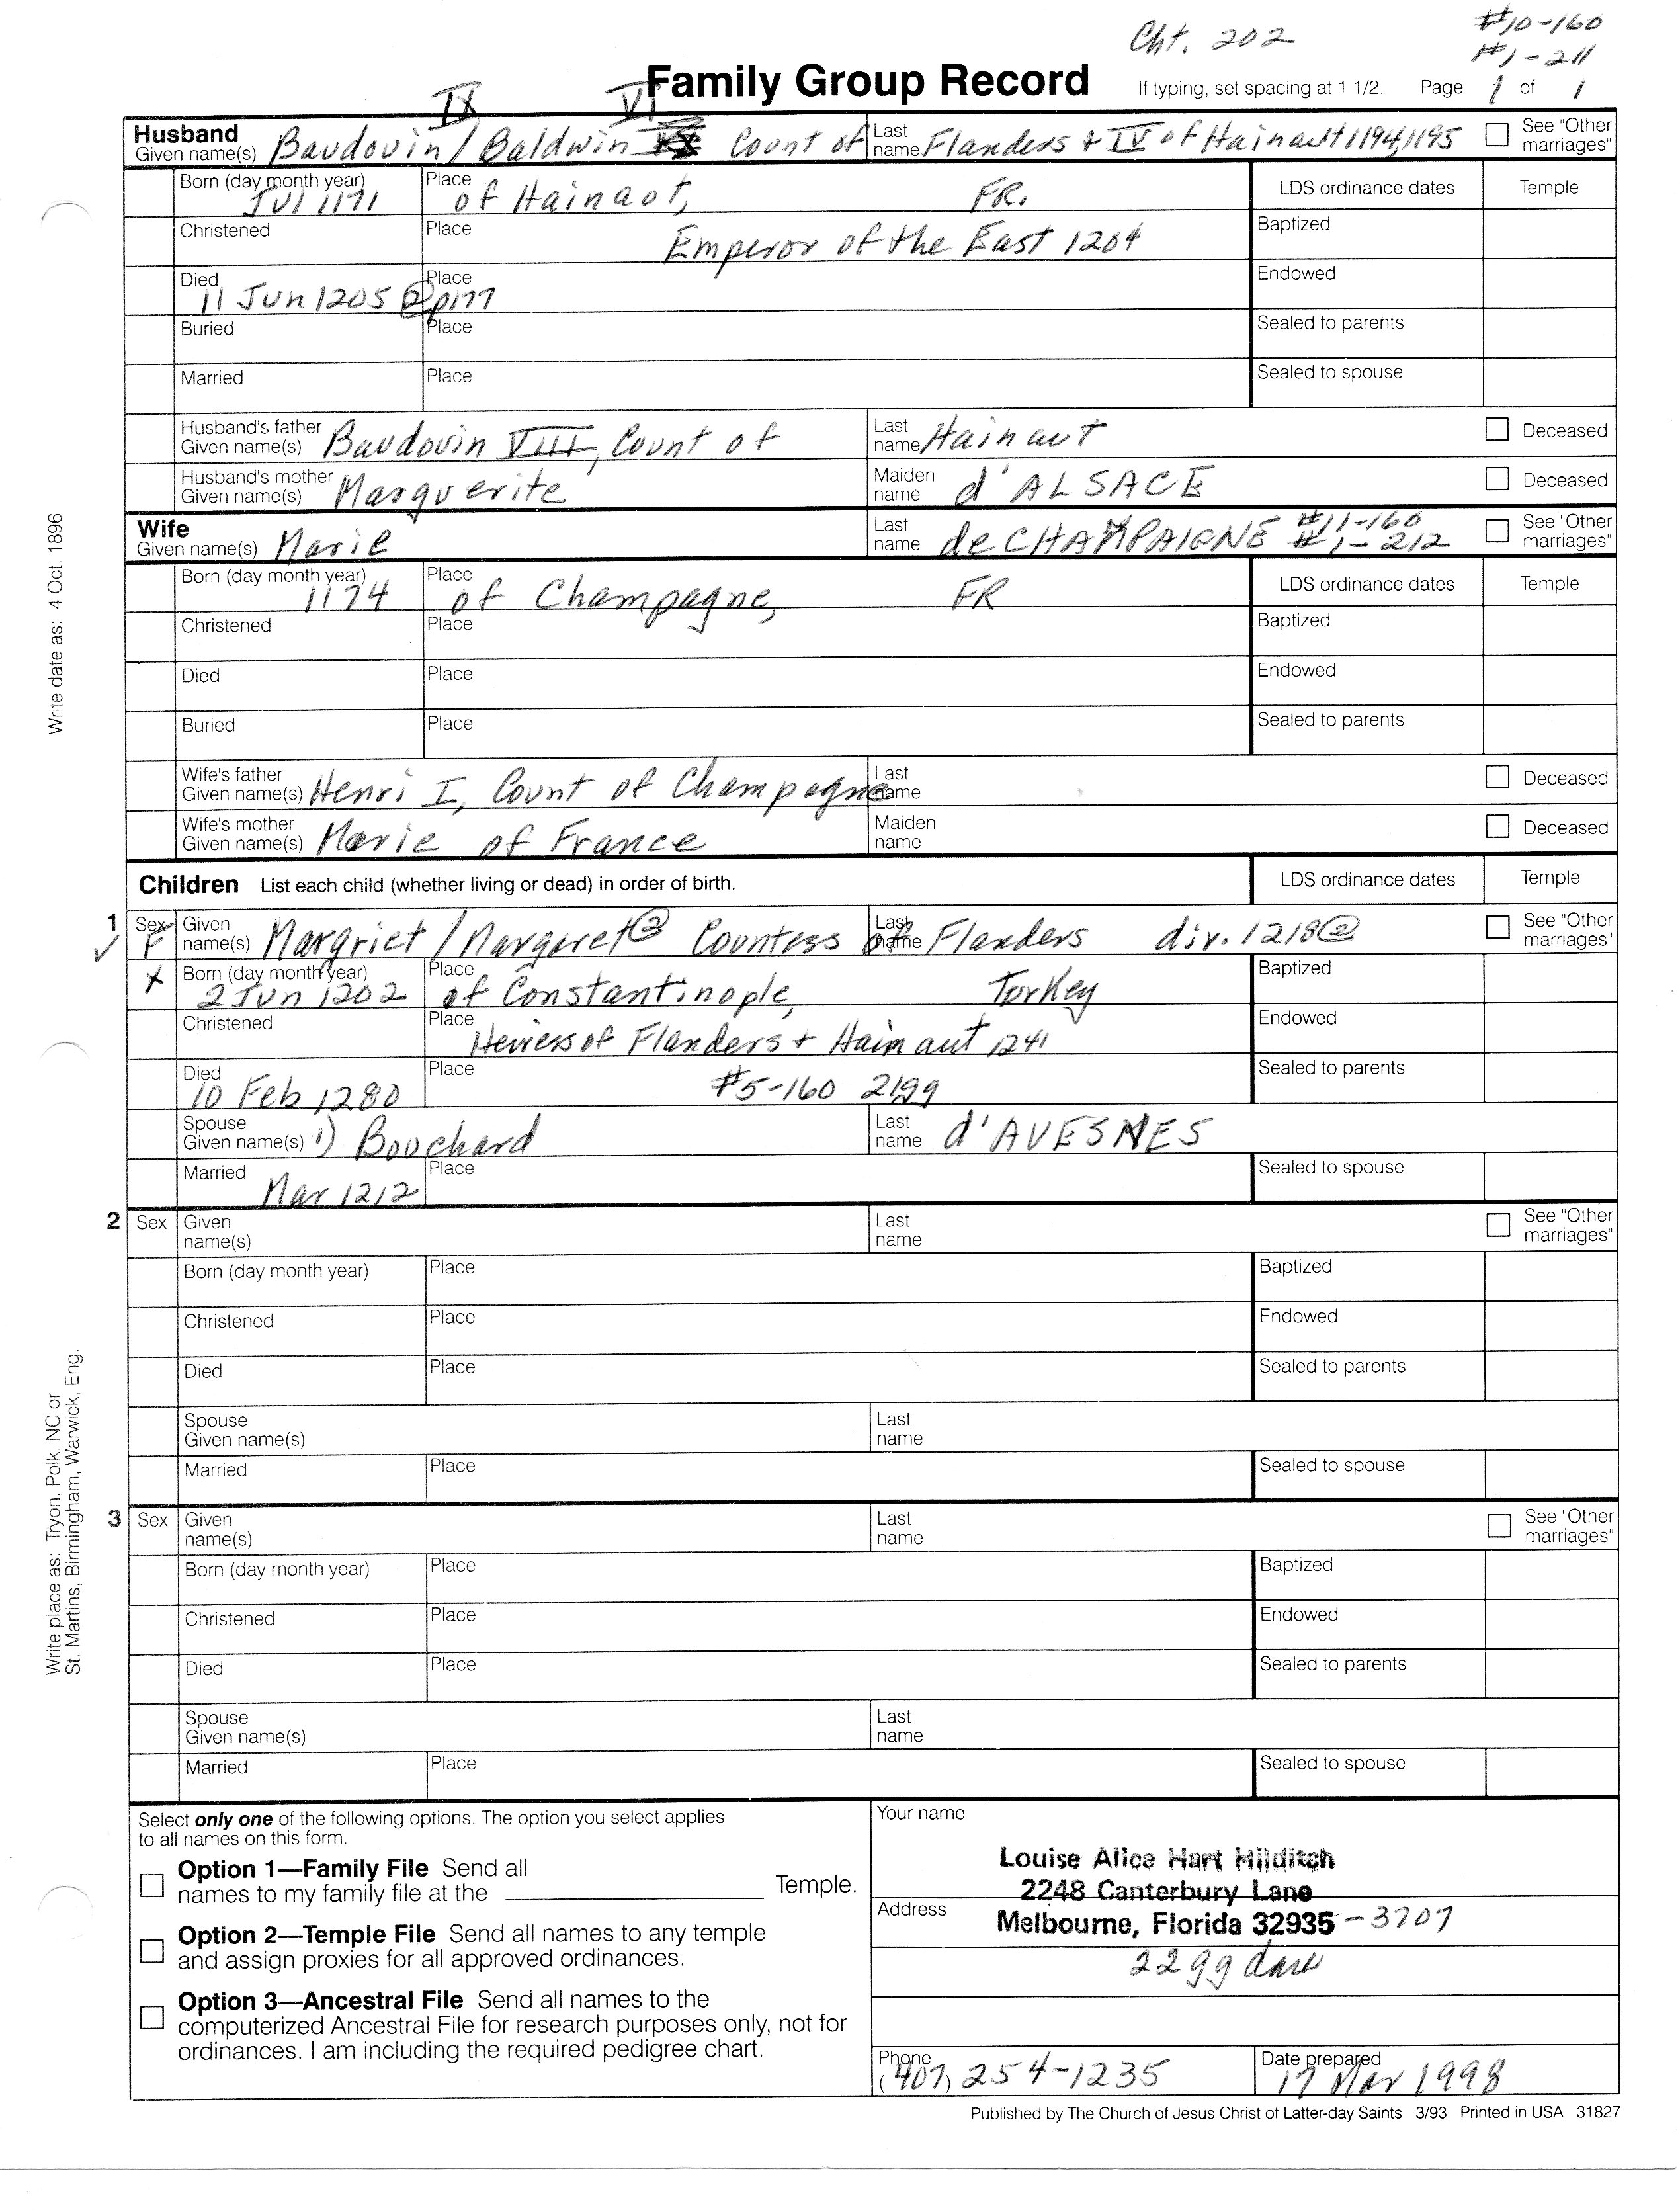 Cht. 202
#10-160
#1-211
Family Group Record
If typing, set spacing at 1 1/2. Page 1 of 1
IX VI
Husband
Given name(s) Baudouin / Baldwin Count of
Last name Flanders + IV of Hainaut 1194/1195
See "Other marriages"
Born (day month year) Jul 1171
Place of Hainaut, FR.
LDS ordinance dates
Temple
Christened
Place Emperor of the East 1204
Baptized
Died 11 Jun 1205 ② p177
Place
Endowed
Buried
Place
Sealed to parents
Married
Place
Sealed to spouse
Husband's father
Given name(s) Baudouin VIII, Count of
Last name Hainaut
Deceased
Husband's mother
Given name(s) Marguerite
Maiden name d'ALSACE
Deceased
Wife
Given name(s) Marie
Last name de CHAMPAIGNE #11-160
#1-212
See "Other marriages"
Born (day month year) 1174
Place of Champagne, FR
LDS ordinance dates
Temple
Christened
Place
Baptized
Died
Place
Endowed
Buried
Place
Sealed to parents
Wife's father
Given name(s) Henri I, Count of Champagne
Last name
Deceased
Wife's mother
Given name(s) Marie of France
Maiden name
Deceased
Children List each child (whether living or dead) in order of birth.
LDS ordinance dates
Temple
1 Sex F
Given name(s) Margriet / Margaret② Countess of
Last name Flanders div. 1218②
See "Other marriages"
X
Born (day month year) 2 Jun 1202
Place of Constantinople, Turkey
Baptized
Christened
Place Heiress of Flanders + Hainaut 1241
Endowed
Died 10 Feb 1280
Place #5-160 21gg
Sealed to parents
Spouse
Given name(s) 1) Bouchard
Last name d'AVESNES
Married Mar 1212
Place
Sealed to spouse
2 Sex
Given name(s)
Last name
See "Other marriages"
Born (day month year)
Place
Baptized
Christened
Place
Endowed
Died
Place
Sealed to parents
Spouse
Given name(s)
Last name
Married
Place
Sealed to spouse
3 Sex
Given name(s)
Last name
See "Other marriages"
Born (day month year)
Place
Baptized
Christened
Place
Endowed
Died
Place
Sealed to parents
Spouse
Given name(s)
Last name
Married
Place
Sealed to spouse
Select only one of the following options. The option you select applies
to all names on this form.
Option 1—Family File Send all
names to my family file at the Temple.
Option 2—Temple File Send all names to any temple
and assign proxies for all approved ordinances.
Option 3—Ancestral File Send all names to the
computerized Ancestral File for research purposes only, not for
ordinances. I am including the required pedigree chart.
Your name
Louise Alice Hart Hilditch
2248 Canterbury Lane
Address
Melbourne, Florida 32935-3707
22gg
Phone
(407) 254-1235
Date prepared
17 Mar 1998
Published by The Church of Jesus Christ of Latter-day Saints 3/93 Printed in USA 31827
Write date as: 4 Oct. 1896
Write place as: Tryon, Polk, NC or
St. Martins, Birmingham, Warwick, Eng.